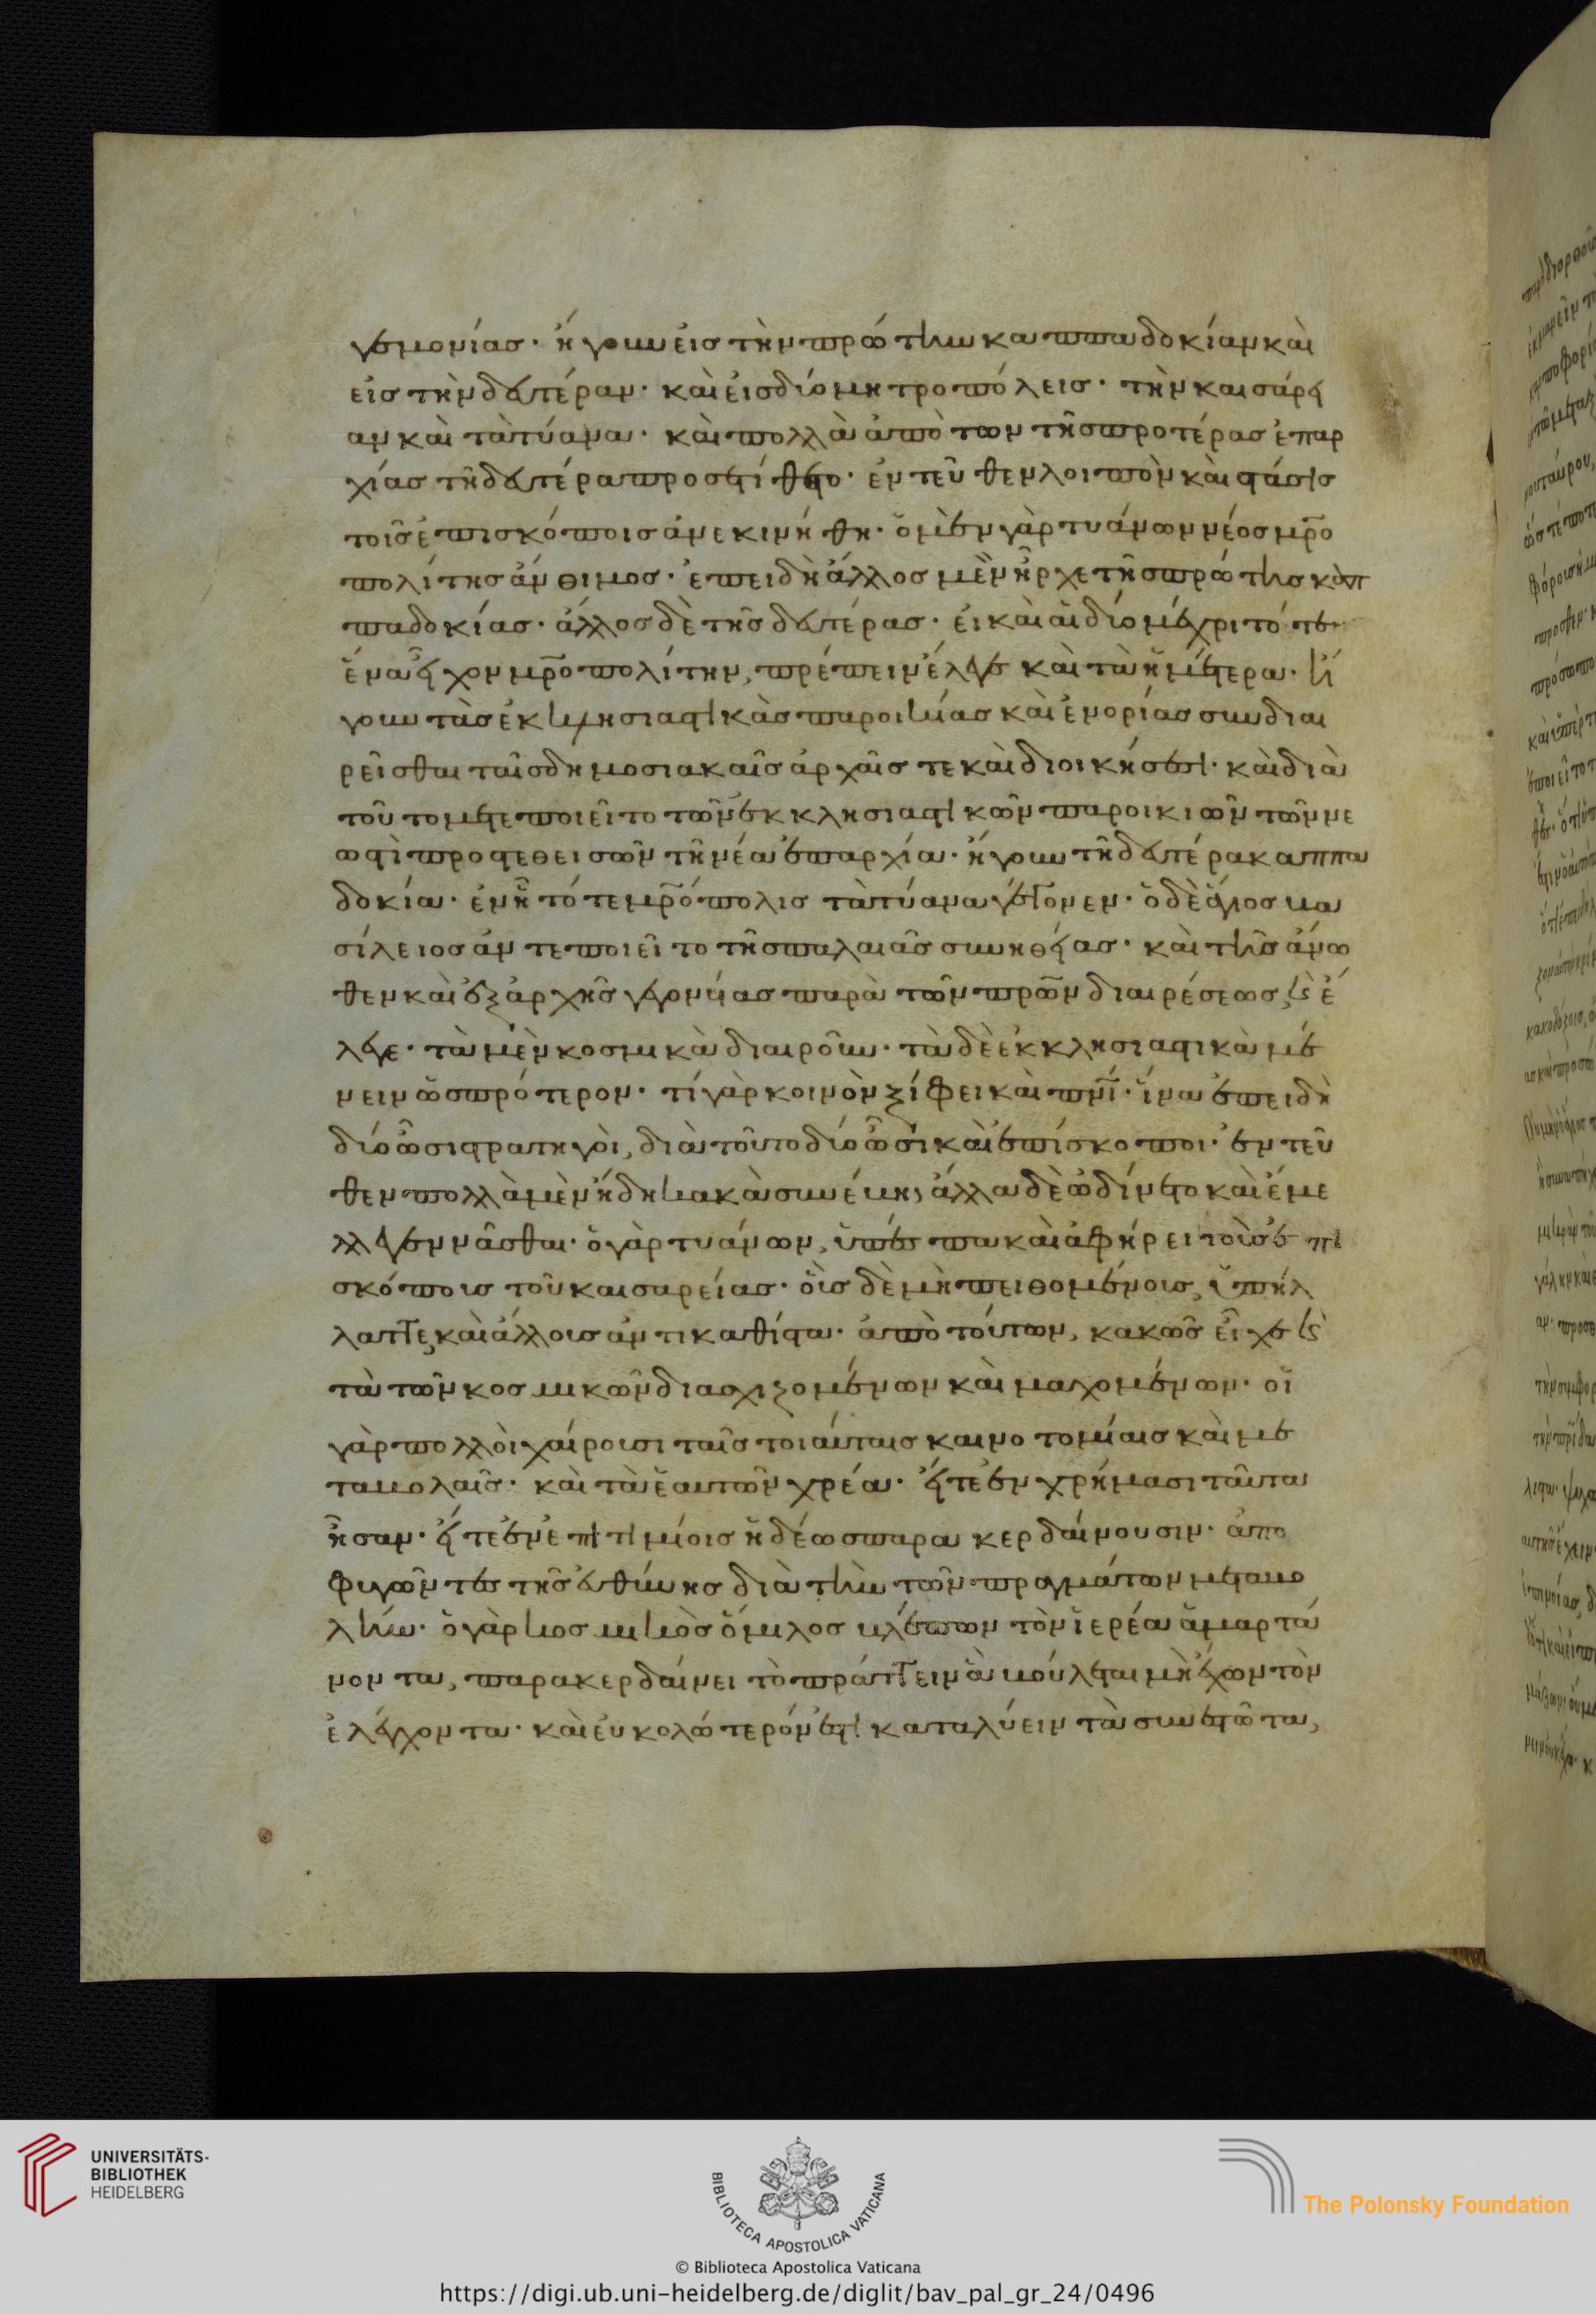 γεμονίας· ἤγουν εἰς τὴν πρώτην καππαδοκίαν καὶ
εἰς τὴν δευτέραν· καὶ εἰς δύο μητροπόλεις· τὴν καισάρει
αν καὶ τὰ τύανα· καὶ πολλὰ ἀπὸ των τῆς προτέρας ἐπαρ
χίας τῆ δευτέρα προστίθεται· ἐντεῦθεν λοιπὸν καὶ στάσις
τοῖς ἐπισκόποις ἀνεκινήθη· ὁ μὲν γὰρ τυάνων νέος μρο
πολίτης ἄνθιμος· ἐπειδὴ ἄλλος μὲν ἦρχε τῆς πρώτης καπ
παδοκίας· ἄλλος δὲ τῆς δευτέρας· εἰ καὶ αἱ δύο μέχρι τότε
ἕνα εἶχον μροπολίτην, πρέπειν ἔλεγε καὶ τὰ ἡμέτερα· ἤ
γουν τὰς ἐκκλησιαστικὰς παροικίας καὶ ἐνορίας συνδιαι
ρεῖσθαι ταῖς δημοσιακαῖς ἀρχαῖς τε καὶ διοικήσεσι· καὶ διὰ
τοῦτο μετεποιεῖτο τῶν ἐκκλησιαστικῶν παροικιῶν τῶν νε
ωστὶ προστεθεισῶν τῆ νέα ἐπαρχία· ἤγουν τῆ δευτέρα καππα
δοκία· ἐν ἧ τότε μρόπολις τὰ τύανα γέγονεν· ὁ δὲ ἅγιος βα
σίλειος ἀντεποιεῖτο τῆς παλαιᾶς συνηθείας· καὶ τῆς ἄνω
θεν καὶ ἐξ ἀρχῆς γεγονυίας παρὰ τῶν πρων διαιρέσεως, καὶ ἔ
λεγε· τὰ μὲν κοσμικὰ διαιροῦν· τὰ δὲ ἐκκλησιαστικὰ μέ
νειν ὡς πρότερον· τί γὰρ κοινὸν ξίφει καὶ πνι· ἵνα ἐπειδὴ
δύο ὦσι στρατηγοὶ, διὰ τοῦτο δύο ὦσι καὶ ἐπίσκοποι· ἐντεῦ
θεν πολλὰ μὲν ἤδη κακὰ συνέβη, ἄλλα δὲ ὠδίνετο καὶ ἔμε
λλε γεννᾶσθαι· ὁ γὰρ τυάνων, ὑπέσπα καὶ ἀφήρει τοὺς ἐπι
σκόπους τοῦ καισαρείας· οἷς δὲ μὴ πειθομένοις, ὑπήλ
λαττε καὶ ἄλλους ἀντικαθίστα· ἀπὸ τούτων, κακῶς εἶχε καὶ
τὰ τῶν κοσμικῶν διασχιζομένων καὶ μαχομένων· οἱ
γὰρ πολλοὶ χαίρουσι ταῖς τοιαύταις καινοτομίαις καὶ με
ταβολαῖς· καὶ τὰ ἑαυτῶν χρέα· εἴτε ἐν χρήμασι ταῦτα
ἦσαν· εἴτε ἐν ἐπιτιμίοις ἡδέως παρακερδαίνουσιν· ἀπο
φυγόντες τῆς εὐθύνης διὰ τὴν τῶν πραγμάτων μεταβο
λήν· ὁ γὰρ κοσμικὸς ὅμιλος βλέπων τὸν ἱερέα ἁμαρτά
νοντα, παρακερδαίνει τὸ πράττειν ἃ βούλεται μὴ ἔχων τὸν
ἐλέγχοντα· καὶ εὐκολώτερόν ἐστι καταλύειν τὰ συνεστῶτα,
UNIVERSITÄTS-
BIBLIOTHEK
HEIDELBERG
BIBLIOTECA APOSTOLICA VATICANA
The Polonsky Foundation
© Biblioteca Apostolica Vaticana
https://digi.ub.uni-heidelberg.de/diglit/bav_pal_gr_24/0496